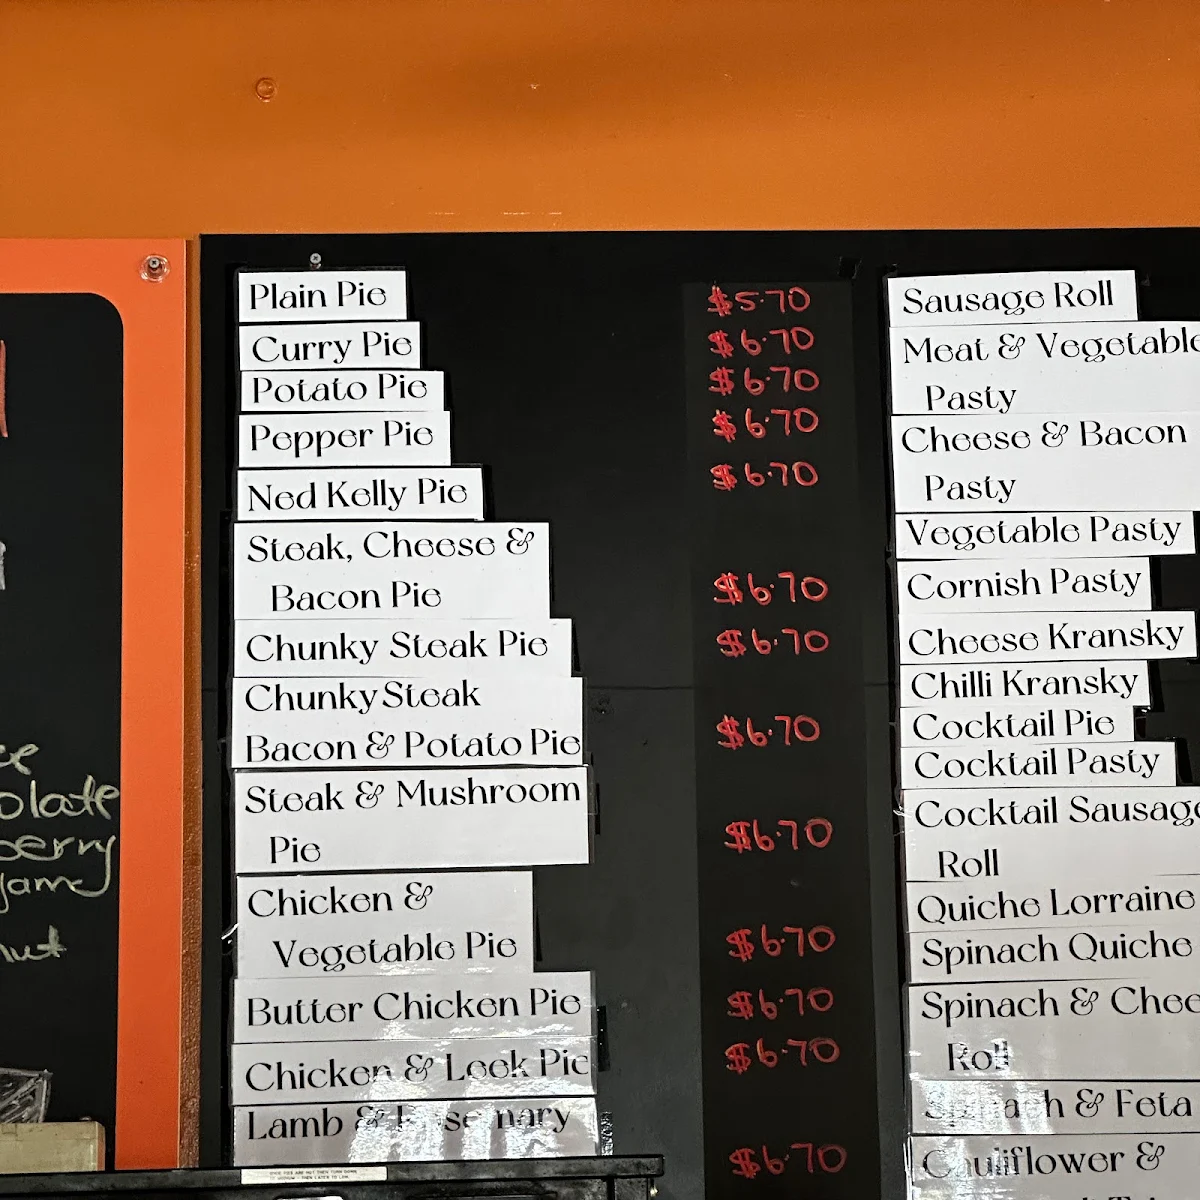 Plain Pie
$5.70
Curry Pie
$6.70
Potato Pie
$6.70
Pepper Pie
$6.70
Ned Kelly Pie
$6.70
Steak, Cheese &
Bacon Pie
$6.70
Chunky Steak Pie
$6.70
Chunky Steak
Bacon & Potato Pie
$6.70
Steak & Mushroom
Pie
$6.70
Chicken &
Vegetable Pie
$6.70
Butter Chicken Pie
$6.70
Chicken & Leek Pie
$6.70
Lamb & Rosemary
$6.70
Sausage Roll
Meat & Vegetable
Pasty
Cheese & Bacon
Pasty
Vegetable Pasty
Cornish Pasty
Cheese Kransky
Chilli Kransky
Cocktail Pie
Cocktail Pasty
Cocktail Sausage
Roll
Quiche Lorraine
Spinach Quiche
Spinach & Chee
Roll
Spinach & Feta
Cauliflower &
olate
erry
jam
nut